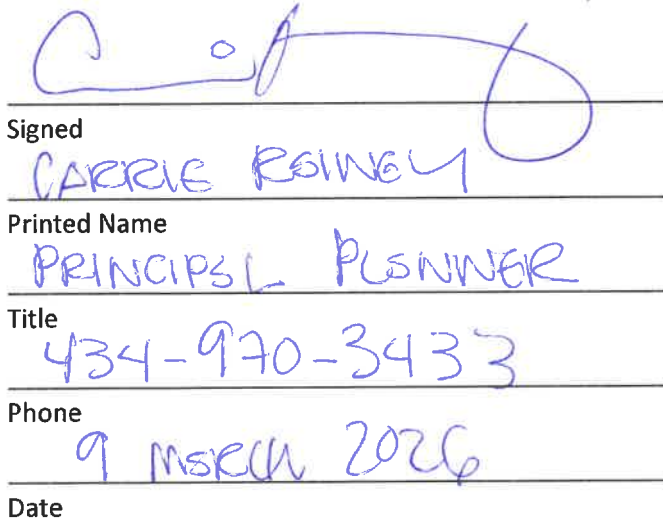 Signed
CARRIE RAINEY
Printed Name
PRINCIPAL PLANNER
Title
434-970-3433
Phone
9 MARCH 2026
Date